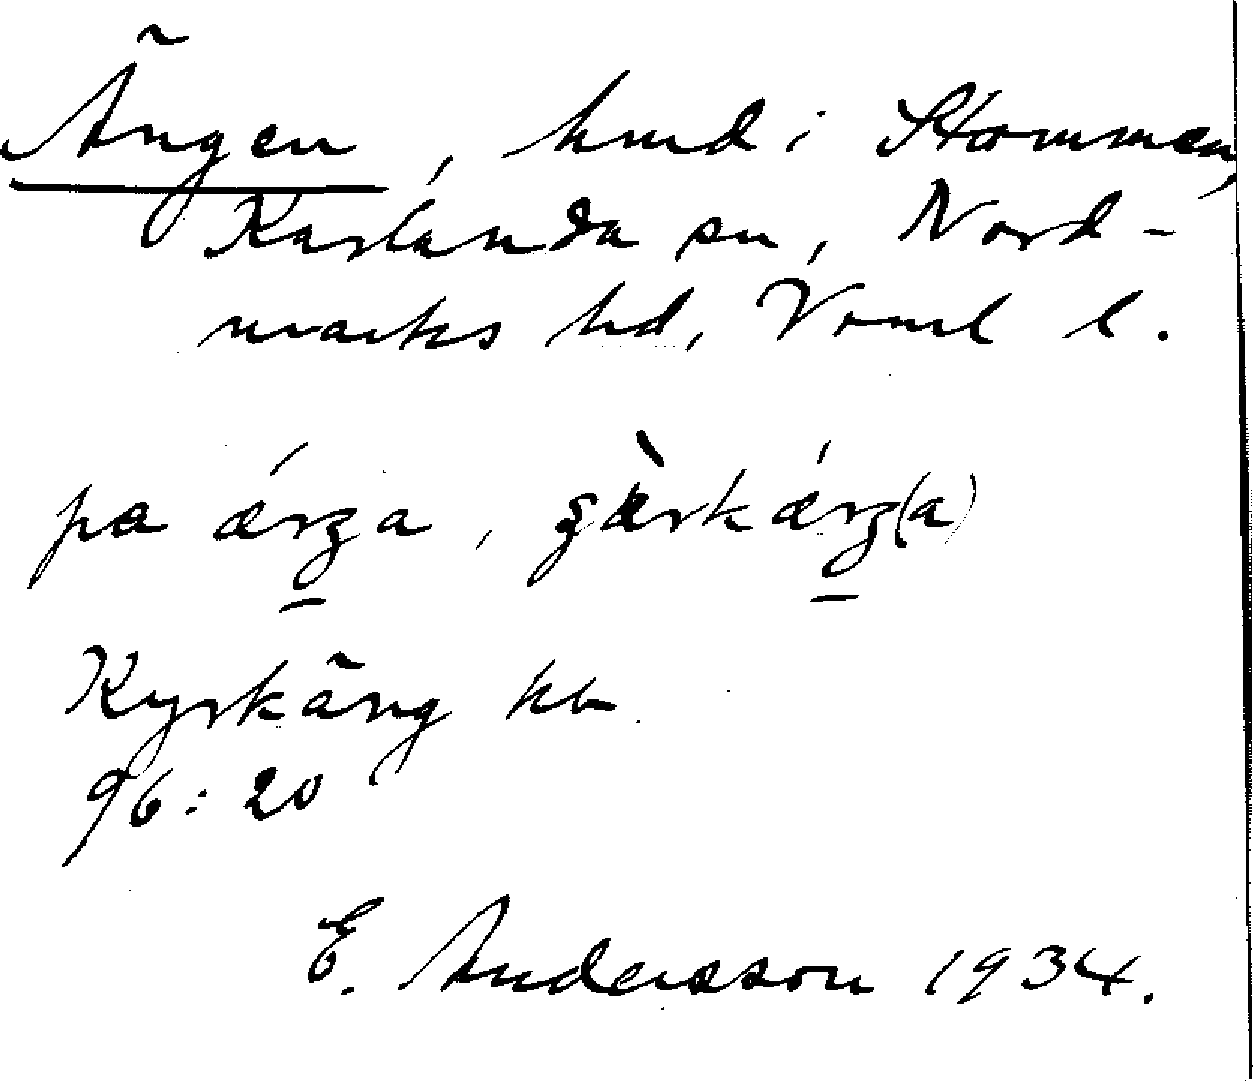 Ängen, hmd i Stommen,
Karlanda sn, Nord-
marks hd, Vrml l.
pa
Kyrkäng kb
96:20
E. Andersson 1934.